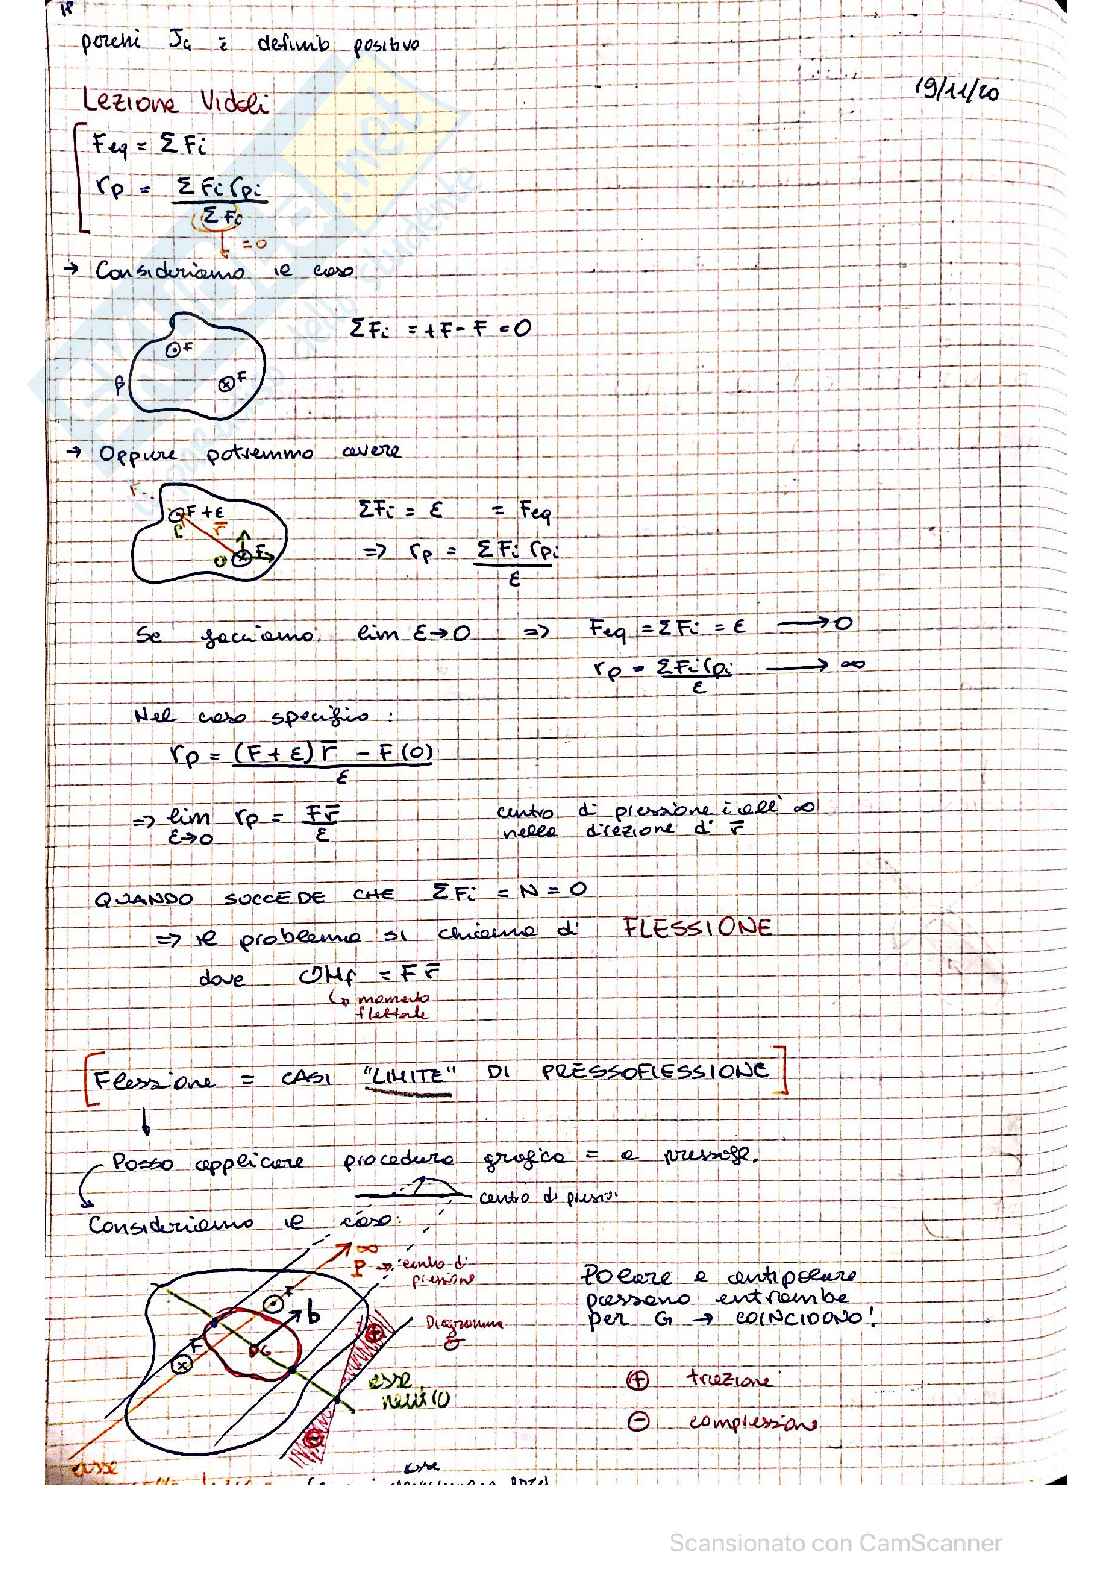 18
poiché J_G è definito positivo
19/11/20
Lezione Vidoli
Feq = ΣFi
rp = ΣFi rpi / ΣFi
↳ =0
→ Consideriamo il caso
ΣFi = +F-F=0
F
β
F
→ Oppure potremmo avere
F+ε
r̄
F
O
ΣFi = ε = Feq
=> rp = ΣFi rpi / ε
Se facciamo lim ε→0 => Feq = ΣFi = ε → 0
rp = ΣFi rpi / ε → ∞
Nel caso specifico:
rp = (F+ε) r̄ - F(0) / ε
=> lim ε→0 rp = F r̄ / ε
centro di pressione è all' ∞
nella direzione di r̄
QUANDO SUCCEDE CHE ΣFi = N = 0
=> il problema si chiama di FLESSIONE
dove Mf = F r̄
↳ momento
flettente
[Flessione = CASI "LIMITE" DI PRESSOFLESSIONE]
Posso applicare procedura grafica = a pressofl.
centro di press.
Consideriamo il caso:
∞
P → centro di
pressione
F
b
F
G
Diagramma
+
asse
neutro
-
Polare e antipolare
passano entrambe
per G → COINCIDONO!
⊕ trazione
⊖ compressione
asse
asse
Scansionato con CamScanner